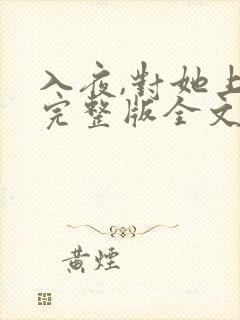 入夜,對她上
完整版全文
黃煙